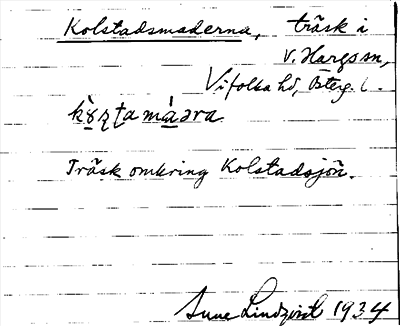 Kolstadsmaderna, träsk i
V. Hargs sn,
Vifolka hd, Österg. l.
Träsk omkring Kolstadsjön.
Sune Lindqvist 1934